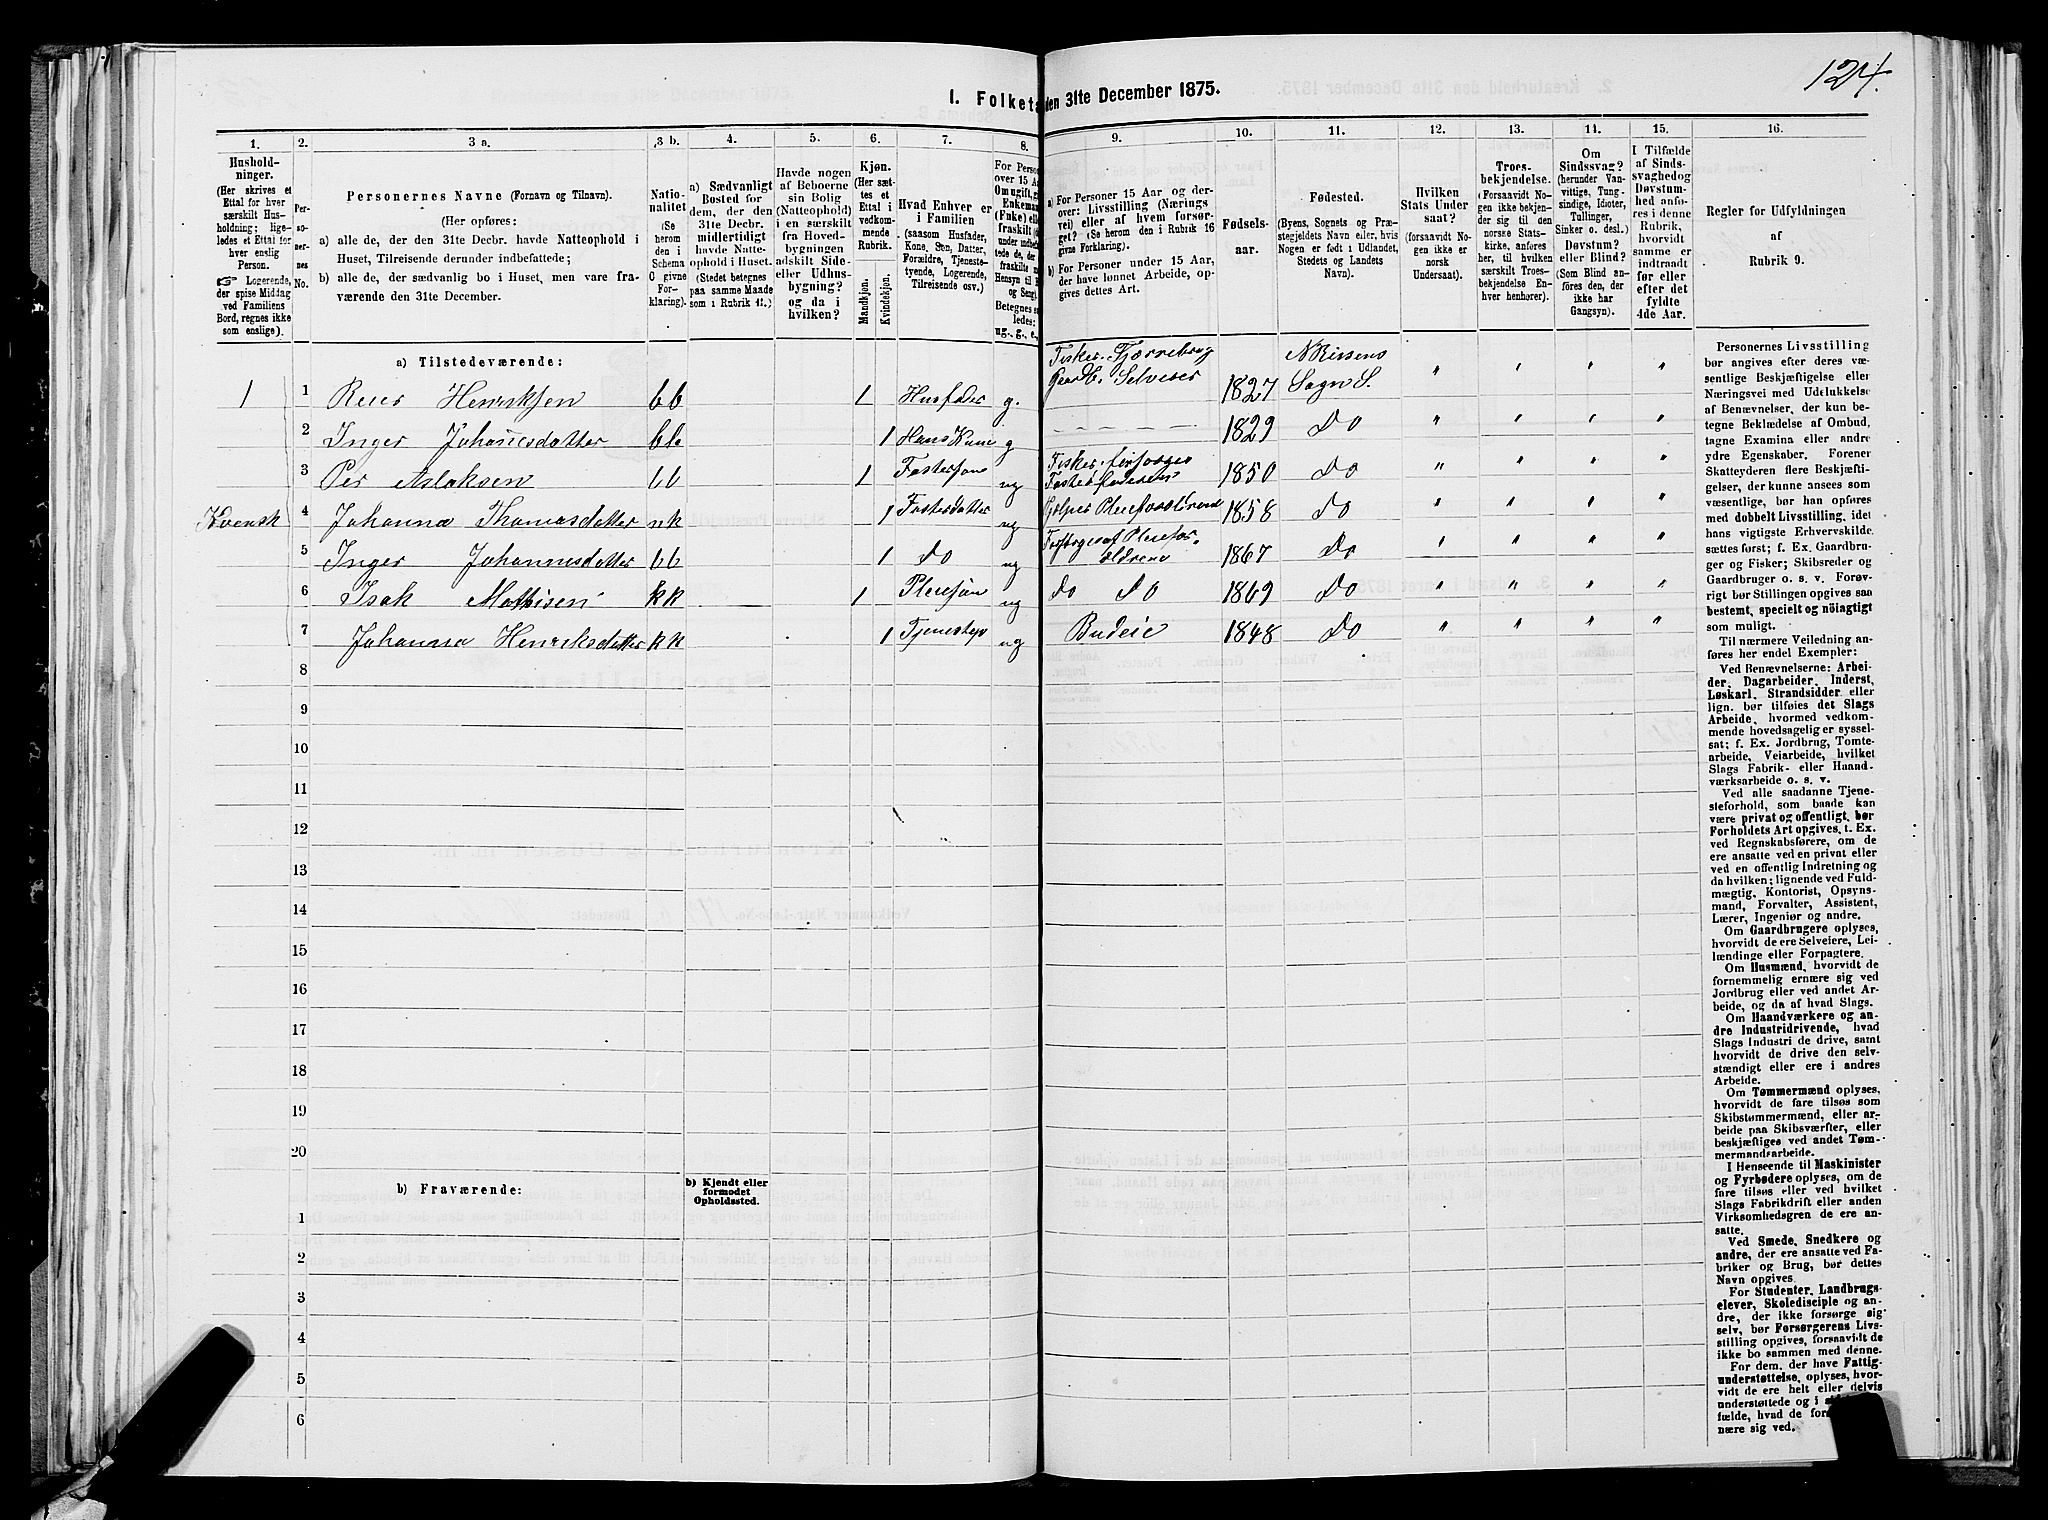 124.
I. Folketa
den 31te December 1875.
1.
Hushold-
ninger.
(Her skrives et
Ettal for hver
særskilt Hus-
holdning; lige-
ledes et Ettal for
hver enslig
Person.
☞ Logerende,
der spise Middag
ved Familiens
Bord, regnes ikke
som enslige).
2.
Per-
so-
ner-
nes
No.
3 a.
Personernes Navne (Fornavn og Tilnavn).
(Her opføres:
a) alle de, der den 31te Decbr. havde Natteophold i
Huset, Tilreisende derunder indbefattede;
b) alle de, der sædvanlig bo i Huset, men vare fra-
værende den 31te December.
3 b.
Natio-
nalitet
(Se
herom
den i
Schema
O givne
For-
klaring).
4.
a) Sædvanligt
Bosted for
dem, der den
31te Decbr.
midlertidigt
havde Natte-
ophold i Huset.
(Stedet betegnes
paa samme Maade
som i Rubrik 11.)
5.
Havde nogen
af Beboerne
sin Bolig
(Natteophold)
i en særskilt
fra Hoved-
bygningen
adskilt Side-
eller Udhus-
bygning?
og da i
hvilken?
6.
Kjøn.
(Her sæt-
tes et
Ettal i
vedkom-
mende
Rubrik.
Mandkjøn.
Kvindekjøn.
7.
Hvad Enhver er
i Familien
(saasom Husfader,
Kone, Søn, Datter,
Forældre, Tjeneste-
tyende, Logerende,
Tilreisende osv.)
8.
For Perso
over 15 Aa
Om ugift, gi
Enkeman
(Fu) ell
fraskilt
9.
a) For Personer 15 Aar og der-
over: Livsstilling (Nærings
vei) eller af hvem forsør-
get? (Se herom den i Rubrik 16
givne Forklaring).
b) For Personer under 15 Aar,
der have lønnet Arbeide, op-
gives dettes Art.
10.
Fødsels-
aar.
11.
Fødested.
(Byens, Sognets og Præ-
stegjeldets Navn eller, hvis
Nogen er født i Udlandet,
Stedets og Landets
Navn).
12.
Hvilken
Stats Under
saat?
(forsaavidt No-
gen ikke er
norsk
Undersaat).
13.
Troes-
bekjendelse.
(Forsaavidt No-
gen ikke bekjen-
der sig til den
norske Stats-
kirke, anføres
her, til hvilken
særskilt Troes-
bekjendelse En-
hver henhører).
14.
Om
Sindssvag?
(herunder Van-
vittige, Tung-
sindige, Idioter,
Tullinger,
Sinker o. desl.)
Døvstum?
eller Blind?
(Som Blind an-
føres den, der
ikke har
Gangsyn).
15.
I Tilfælde
af Sinds-
svaghed og
Døvstum-
hed anfø-
res i denne
Rubrik,
hvorvidt
samme er
indtraadt
før eller
efter det
fyldte
4de Aar.
16.
Regler for Udfyldningen
af
Rubrik 9.
a) Tilstedeværende:
1 1 Henriksen bb 1 Husfader g. Fisker. Gaardb. Selveier 1827 N Reisens Sogn S. " " " "
2 Inger Johannesdatter bb 1 Hans Kone g - - - - - 1829 Do " " " "
3 Per Aslaksen bb 1 Fostersøn ug Fisker, forsørges 1850 Do " " " "
Kvensk 4 Johanna Thomasdatter nk 1 Fosterdatter ug Hjelper 1858 Do " " " "
5 Inger Johannesdatter bb 1 Do ug Forsørges af Pleiefor-ældrene 1867 Do " " " "
6 Isak Mathisen kk 1 Pleiesøn ug Do Do 1869 Do " " " "
7 Johanna Henriksdatter kk 1 Tjenestepi ug Budeie 1848 Do " " " "
8
9
10
11
12
13
14
15
16
17
18
19
20
b) Fraværende:
b) Kjendt eller
formodet
Opholdssted.
1
2
3
4
5
6
Personernes Livsstilling
bør angives efter deres væ-
sentlige Beskjæftigelse eller
Næringsvei med Udelukkelse
af Benævnelser, der kun be-
tegne Beklædelse af Ombud,
tagne Examina eller andre
ydre Egenskaber. Forener
Skatteyderen flere Beskjæfti-
gelser, der kunne ansees som
væsentlige, bør han opføres
med dobbelt Livsstilling, idet
hans vigtigste Erhvervskilde
sættes først; f. Ex. Gaardbru-
ger og Fisker; Skibsreder og
Gaardbruger o. s. v. Forøv-
rigt bør Stillingen opgives saa
bestemt, specielt og nöiagtigt
som muligt.
Til nærmere Veiledning an-
føres her endel Exempler:
Ved Benævnelserne: Arbei-
der, Dagarbeider, Inderst,
Løskarl, Strandsidder eller
lign. bør tilføies det Slags
Arbeide, hvormed vedkom-
mende hovedsagelig er syssel-
sat; f. Ex. Jordbrug, Tomte-
arbeide, Veiarbeide, hvilket
Slags Fabrik- eller Haand-
værksarbeide o. s. v.
Ved alle saadanne Tjene-
steforhold, som baade kan
være privat og offentligt, bør
Forholdets Art opgives, t. Ex.
ved Regnskabsførere, om de
ere ansatte ved en privat eller
ved en offentlig Indretning og
da hvilken; lignende ved Fuld-
mægtig, Kontorist, Opsyns-
mand, Forvalter, Assistent,
Lærer, Ingeniør og andre.
Om Gaardbrugere oplyses,
hvorvidt de ere Selveiere, Lei-
lændinge eller Forpagtere.
Om Husmænd, hvorvidt de
fornemmelig ernære sig ved
Jordbrug eller ved andet Ar-
beide, og da af hvad Slags.
Om Haandværkere og an-
dre Industridrivende, hvad
Slags Industri de drive, samt
hvorvidt de drive den selv-
stændigt eller ere i andres
Arbeide.
Om Tømmermænd oplyses,
hvorvidt de fare tilsøs som
Skibstømmermænd, eller ar-
beide paa Skibsværfter, eller
beskjæftiges ved andet Tøm-
mermandsarbeide.
I Henseende til Maskinister
og Fyrbødere oplyses, om de
fare tilsøs eller ved hvilket
Slags Fabrikdrift eller anden
Virksomhedsgren de ere an-
satte.
Ved Smede, Snedkere og
andre, der ere ansatte ved Fa-
briker og Brug, bør dettes
Navn opgives.
For Studenter, Landbrugs-
elever, Skoledisciple og an-
dre, der ikke forsørge sig
selv, bør Forsørgerens Livs-
stilling opgives, forsaavidt de
ikke bo sammen med denne.
For dem, der have Fattig-
understøttelse, oplyses, hvor-
vidt de ere helt eller delvis
understøttede og i
fælde, hvad de for
nære sig ved.